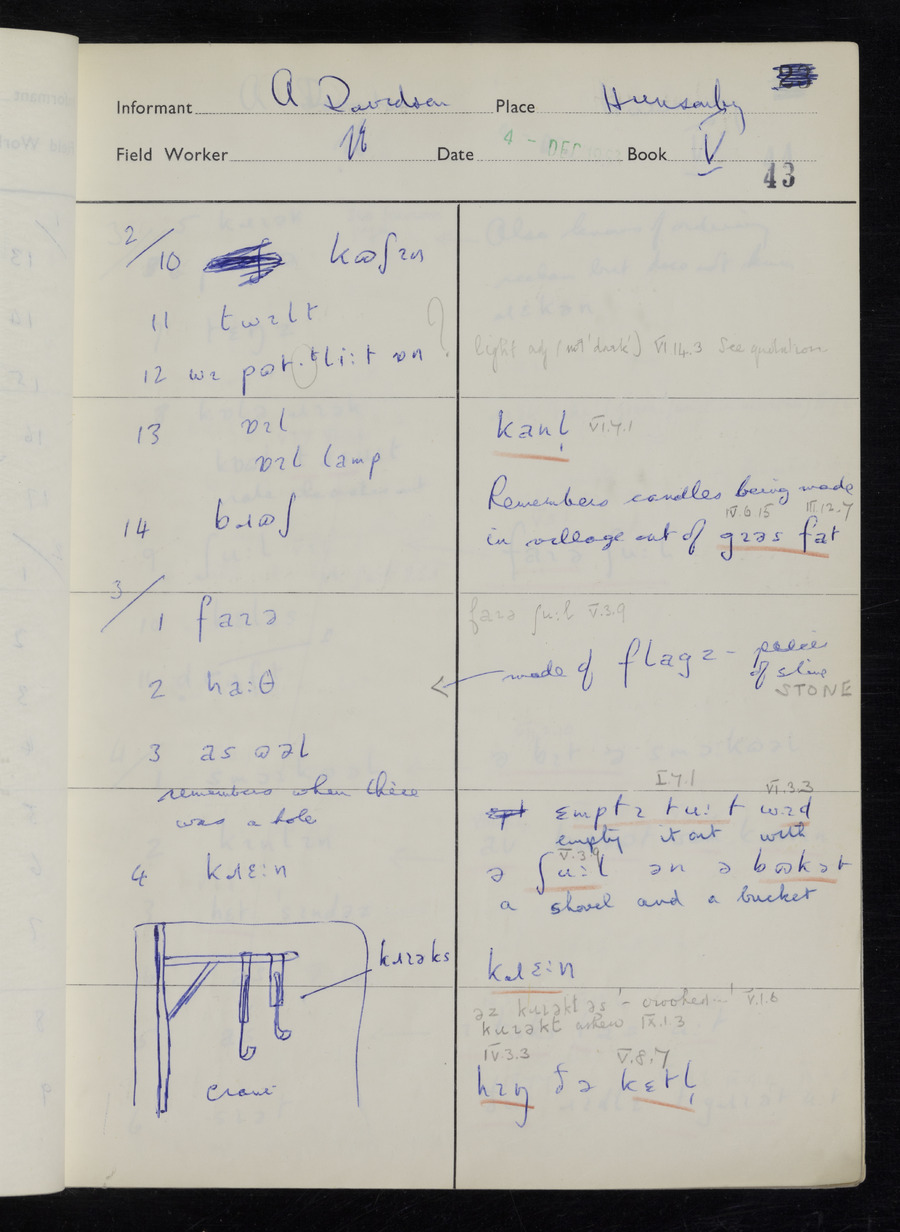 Informant A Davidson Place Hunsonby
Field Worker Date 4 - DEC Book V
43
2/10 kʊʃɪn
11 twɪlt
12 wɪ pʊt ðə liːt ɒn
light adj (not 'dark') VI 14.3 See quotation
13 ɒɪl
ɒɪl lamp
14 bɹʊʃ
kanl̩ VI.7.1
Remembers candles being made
IV.6 15 III.12.7
in village out of gɹəs fat
3/1 faɪə
faɪə ʃuːl V.3.9
2 haːθ
made of flagz - pieces
of stone
STONE
3 as ʊəl
remembers when there
was a hole
I.7.1 VI.3.3
emptɪ tuːt wɪd
empty it out with
V.3.9
ə ʃuːl ən ə bʊkət
a shovel and a bucket
4 kɹɛːn
kɹɛːn
kɹɪəks
crane
əz kɹɪəkt əs '-crooked...' V.1.6
kɹɪəkt askew IX.1.3
IV.3.3 V.8.7
hɪŋ ðə kɛtl̩